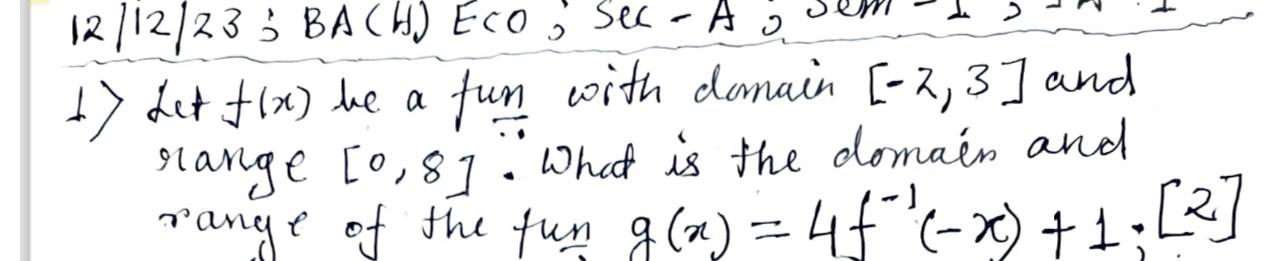 12/12/23 ; BA(H) Eco ; Sec - A ; Sem - I ;
1) Let f(x) be a fun with domain [-2, 3] and
range [0, 8]. What is the domain and
range of the fun g(x) = 4f⁻¹(-x) + 1; [2]